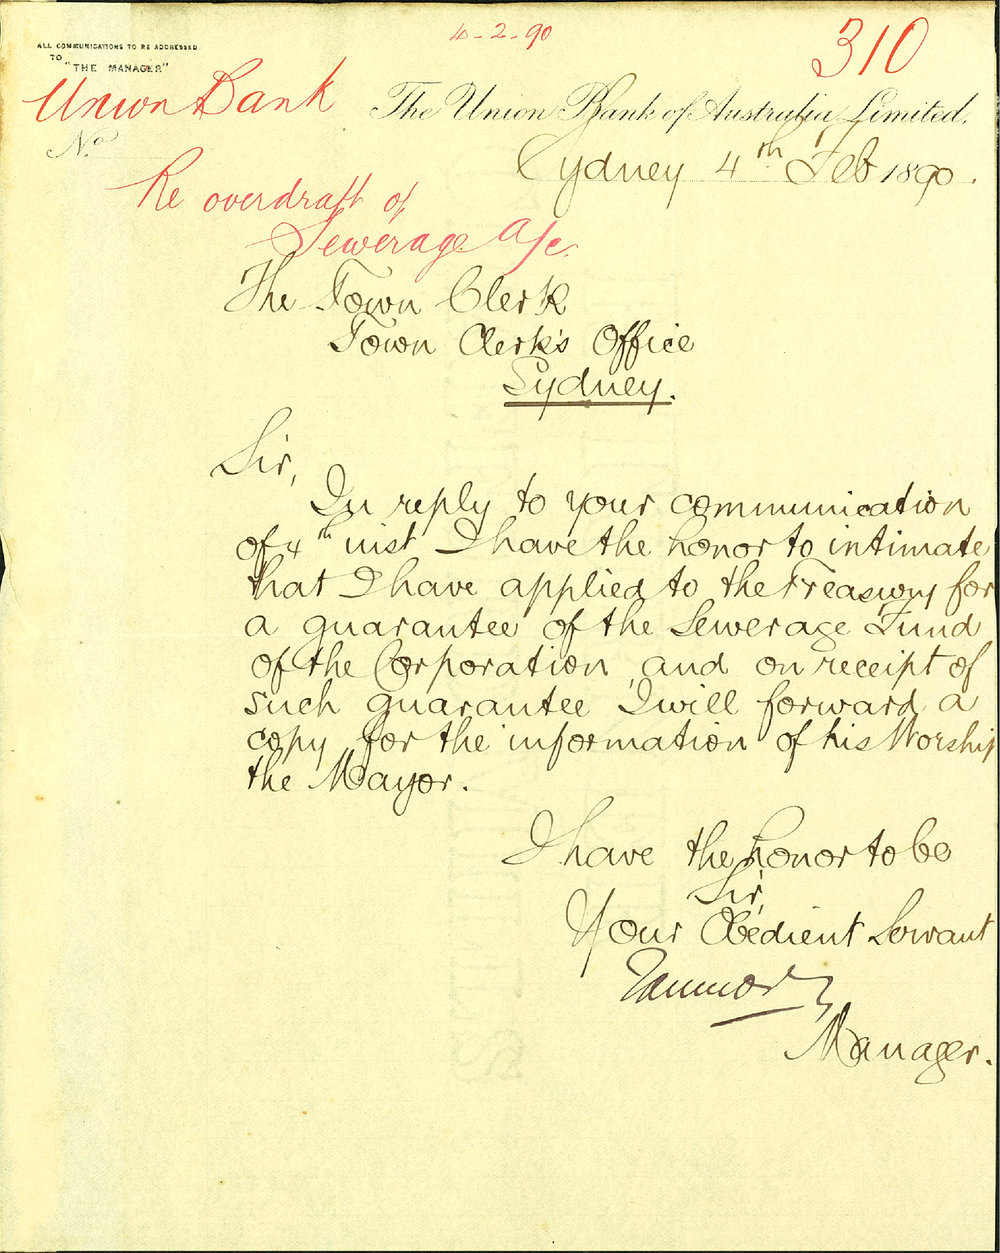 4-2-90
310
ALL COMMUNICATIONS TO BE ADDRESSED
TO
"THE MANAGER"
Union Bank
The Union Bank of Australia Limited.
No
Sydney 4th Feb 1890.
Re overdraft of
Sewerage a/c.
The Town Clerk
Town Clerk's Office
Sydney.
Sir,
In reply to your communication
of 4th inst I have the honor to intimate
that I have applied to the Treasury for
a guarantee of the Sewerage Fund
of the Corporation, and on receipt of
such guarantee I will forward a
copy for the information of his Worship
the Mayor.
I have the honor to be
Sir,
Your Obedient Servant
Manager.